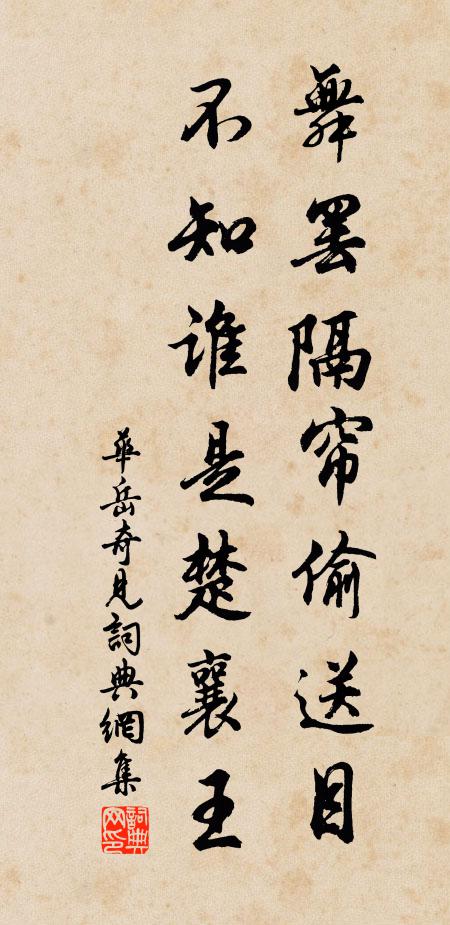 舞罢隔帘偷送目
不知谁是楚襄王
华岳奇见詞典網集
詞典网印